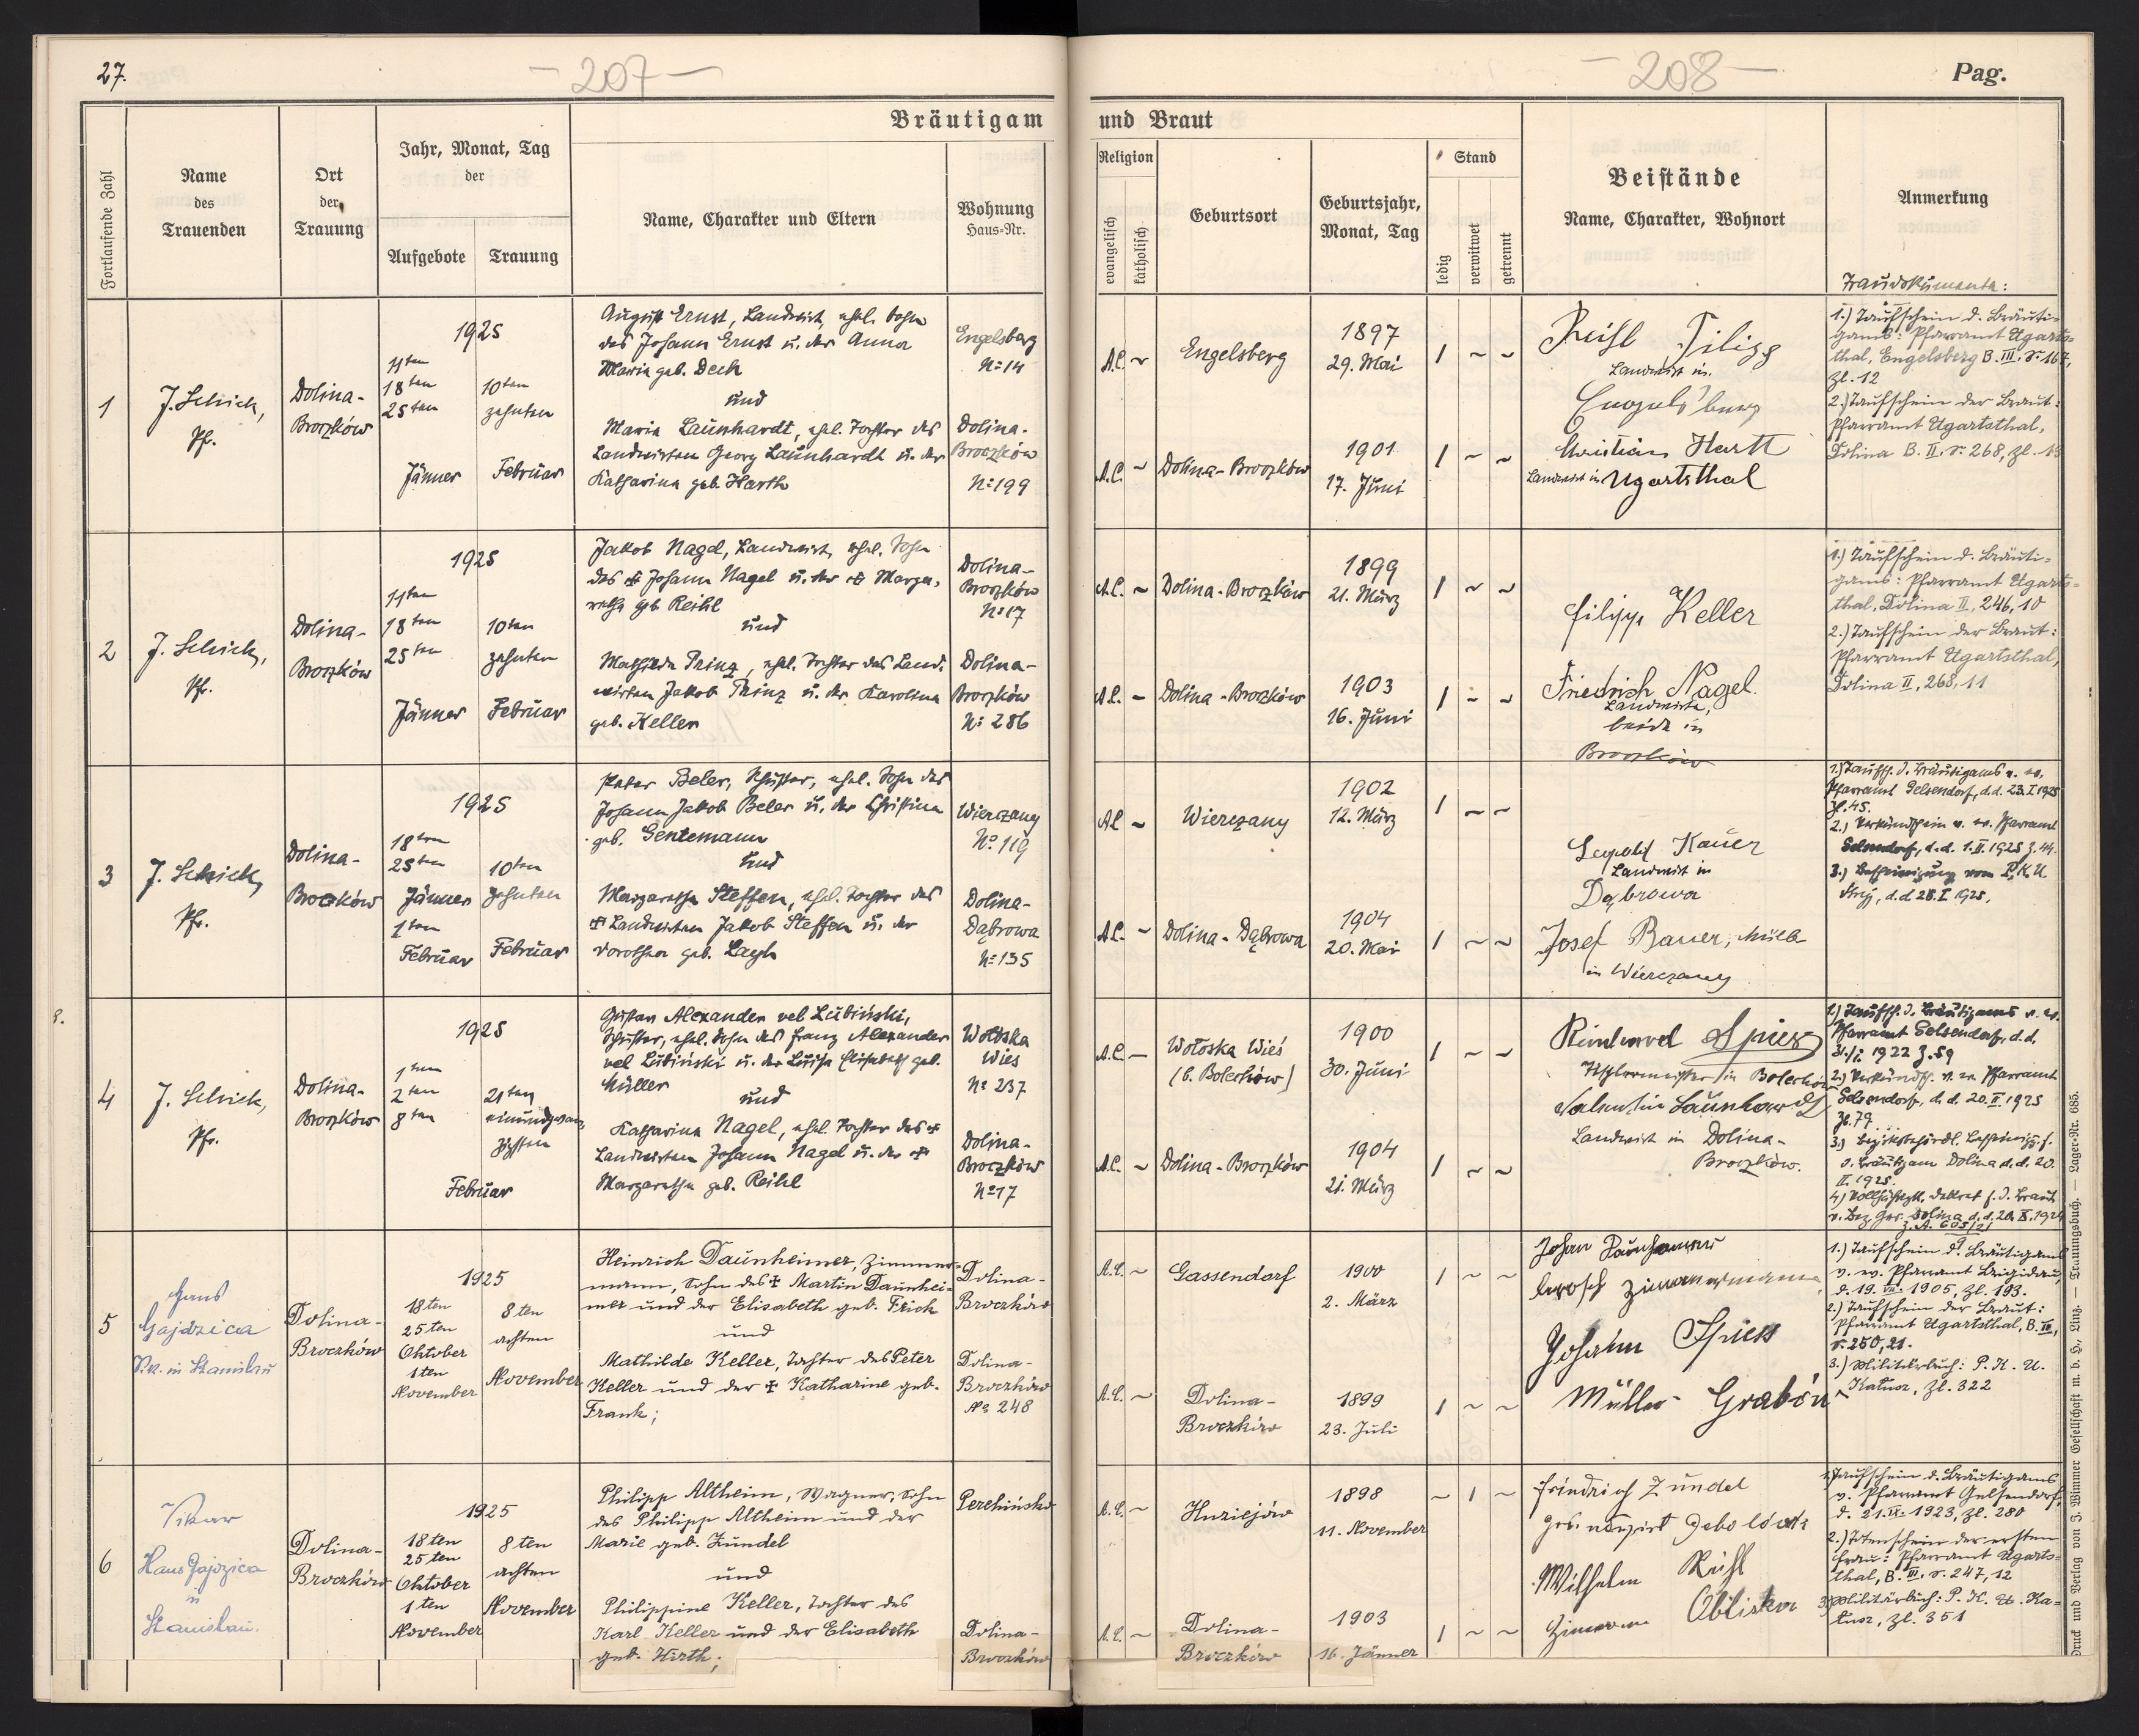 27.
- 207 -
- 208 -
Pag.
Bräutigam
und Braut
Fortlaufende Zahl
Name
des
Trauenden
Ort
der
Trauung
Jahr, Monat, Tag
der
Aufgebote
Trauung
Name, Charakter und Eltern
Wohnung
Haus=Nr.
Religion
evangelisch
katholisch
Geburtsort
Geburtsjahr,
Monat, Tag
Stand
ledig
verwitwet
getrennt
Beistände
Name, Charakter, Wohnort
Anmerkung
Traudokumente:
1
J. Schick,
Pf.
Dolina-
Broczków
1925
11ten
18ten
25ten
Jänner
10ten
zehnten
Februar
August Ernst, Landwirt, ehel. Sohn
des Johann Ernst u. der Anna
Maria geb. Dech
und
Maria Launhardt, ehel. Tochter des
Landwirten Georg Launhardt u. der
Katharina geb. Harth
Engelsberg
No 14
Dolina-
Broczków
No 199
A.C. ~
Engelsberg
1897
29. Mai
1 ~ ~
A.C. ~
Dolina-Broczków
1901
17. Juni
1 ~ ~
Reihl Filipp
Landwirt in
Engelsberg
Christian Hartt
Landwirt in Ugartsthal
1.) Taufschein d. Bräuti-
gams: Pfarramt Ugarts-
thal, Engelsberg B. III. S. 167,
Zl. 12
2.) Taufschein der Braut:
Pfarramt Ugartsthal,
Dolina B. II. S. 268, Zl. 13
2
J. Schick,
Pf.
Dolina-
Broczków
1925
11ten
18ten
25ten
Jänner
10ten
zehnten
Februar
Jakob Nagel, Landwirt, ehel. Sohn
des ✠ Johann Nagel u. der ✠ Marga-
retha geb. Reihl
und
Mathilde Prinz, ehel. Tochter des Land-
wirten Jakob Prinz u. der Karolina
geb. Keller
Dolina-
Broczków
No 17
Dolina-
Broczków
No 286
A.C. ~
Dolina-Broczków
1899
21. März
1 ~ ~
A.C. ~
Dolina-Broczków
1903
16. Juni
1 ~ ~
Filipp Keller
Friedrich Nagel.
Landwirte,
beide in
Broczków
1.) Taufschein d. Bräuti-
gams: Pfarramt Ugarts-
thal, Dolina II, 246, 10
2.) Taufschein der Braut:
Pfarramt Ugartsthal,
Dolina II, 268, 11
3
J. Schick,
Pf.
Dolina-
Broczków
1925
18ten
25ten
Jänner
1ten
Februar
10ten
zehnten
Februar
Peter Beler, Schuster, ehel. Sohn des
Johann Jakob Beler u. der Christina
geb. Gentemann
und
Margaretha Steffen, ehel. Tochter des
✠ Landwirten Jakob Steffen u. der
Dorothea geb. Layh
Wierczany
No 119
Dolina-
Dąbrowa
No 135
A.C. ~
Wierczany
1902
12. März
1 ~ ~
A.C. ~
Dolina-Dąbrowa
1904
20. Mai
1 ~ ~
Leopold Kauer
Landwirt in
Dąbrowa
Josef Bauer,
in Wierczany
1.) Taufsch. d. Bräutigams v. ev.
Pfarramt Gelsendorf, d.d. 23.I.1925
Zl. 45.
2.) Verkündschein v. ev. Pfarramt
Gelsendorf, d.d. 1.II.1925 Z. 44.
3.) Bescheinigung vom P.K.U
Stryj, d.d. 28.I.1925,
4
J. Schick,
Pf.
Dolina-
Broczków
1925
1ten
2ten
8ten
21ten
einundzwan-
zigsten
Februar
Gustav Alexander vel Lubiński,
Schuster, ehel. Sohn des Franz Alexander
vel Lubiński u. der Luisa Elisabeth geb.
Müller
und
Katharina Nagel, ehel. Tochter des ✠
Landwirten Johann Nagel u. der ✠
Margaretha geb. Reihl
Wołoska
Wies
No 237
Dolina-
Broczków
No 17
A.C. ~
Wołoska Wieś
(b. Bolechów)
1900
30. Juni
1 ~ ~
A.C. ~
Dolina-Broczków
1904
21. März
1 ~ ~
Reinhard Spiess
Tischlermeister in Bolechów
Valentin Launhardt
Landwirt in Dolina-
Broczków.
1.) Taufsch. d. Bräutigams v. ev.
Pfarramt Gelsendorf, d.d.
1922 Z. 59
2.) Verkündsch. v. ev. Pfarramt
Gelsendorf, d.d. 20.II.1925
Zl. 79
3.) Bezirksbehördl. Bescheinigg. f.
d. Bräutigam Dolina d.d. 20.
II. 1925.
v. Bez. Ger. Dolina d.d. 20.X.1924
5
Hans
Gajdzica
Vik. in Stanislau
Dolina-
Broczków
1925
18ten
25ten
Oktober
1ten
November
8ten
achten
November
Heinrich Daunheimer, Zimmer-
mann, Sohn des ✠ Martin Daunhei-
mer und der Elisabeth geb. Frich
und
Mathilde Keller, Tochter des Peter
Keller und der ✠ Katharine geb.
Frank;
Dolina-
Broczków
Dolina-
Broczków
No 248
A.C. ~
Gassendorf
1900
2. März
1 ~ ~
A.C. ~
Dolina-
Broczków
1899
23. Juli
1 ~ ~
Johan Daunheimer
Johann Spiess
Müller Grabów
1.) Taufschein d. Bräutigams
v. ev. Pfarramt Brigidau,
d. 19. VII. 1905, Zl. 193.
2.) Taufschein der Braut:
Pfarramt Ugartsthal, B. II,
S. 250, 21.
3.) Militärbuch: P. K. U.
Kałusz, Zl. 322
6
Vikar
Hans Gajdzica
in
Stanislau.
Dolina-
Broczków
1925
18ten
25ten
Oktober
1ten
November
8ten
achten
November
Philipp Altheim, Wagner, Sohn
des Philipp Altheim und der
Marie geb. Zündel
und
Philippine Keller, Tochter des
Karl Keller und der Elisabeth
geb. Hirth;
Perehińsko
Dolina-
Broczków
A.C. ~
Huziejów
1898
11. November
~ 1 ~
A.C. ~
Dolina-
Broczków
1903
16. Jänner
1 ~ ~
Friedrich Zündel
Wilhelm Reihl
Obliska
1.) Taufschein d. Bräutigams
v. Pfarramt Gelsendorf,
d. 21. IX. 1923, Zl. 280
2.) Totenschein der ersten
Frau: Pfarramt Ugarts-
thal, B. III. S. 247, 12
3.) Militärbuch: P. K. U. Ka-
łusz, Zl. 351
Druck und Verlag von J. Wimmer Gesellschaft m. b. H., Linz. — Trauungsbuch. — Lager-Nr. 685.